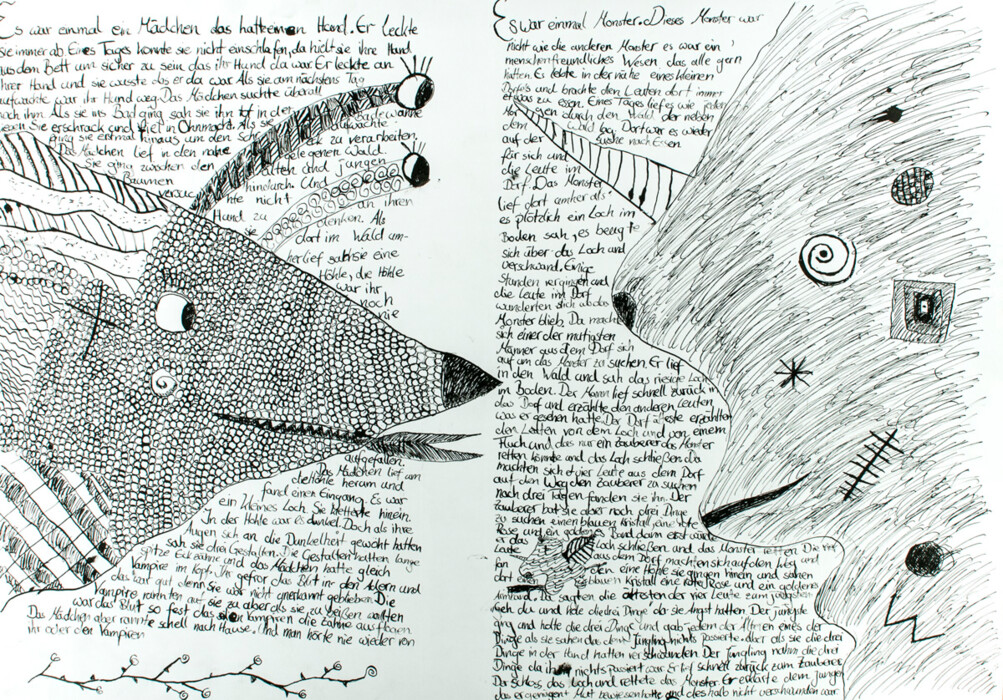 Es war einmal ein Mädchen das hatte einen Hund. Er leckte
sie immer ab Eines Tages konnte sie nicht einschlafen, da hielt sie ihre Hand
aus dem Bett um sicher zu sein das ihr Hund da war Er leckte an
ihrer Hand und sie wusste das er da war Als sie am nächsten Tag
aufwachte war ihr Hund weg. Das Mädchen suchte überall
noch ihm. Als sie ins Bad ging sah sie ihn tot in der Badewanne
Sie erschrack und fiel in Ohnmacht. Als sie aufwachte
ging sie erstmal hinaus um den zu verarbeiten.
Das Mädchen lief in den nahe gelegenen Wald.
Sie ging zwischen den alten und jungen
Bäumen hindurch. Und
versuchte nicht an ihren
Hund zu denken. Als
sie dort im Wald um-
herlief sah sie eine
Höhle, die Höhle
war ihr
noch
nie
aufgefallen.
Das Mädchen lief um
die Höhle herum und
fand einen Eingang. Es war
ein kleines Loch. Sie kletterte hinein.
In der Höhle war es dunkel. Doch als ihre
Augen sich an die Dunkelheit gewöht hatten
sah sie drei Gestalten. Die Gestalten hatten lange
spitze Eckzähne und das Mädchen hatte gleich
Vampire im Kopf. Ihr gefror das Blut in den Adern und
das war gut denn sie war nicht unerkannt geblieben. Die
Vampire rannten auf sie zu aber als sie zu beißen wollten
war das Blut so fest das den Vampiren die Zähne ausfielen
Das Mädchen aber rannte schnell nach Hause. Und man hörte nie wieder von
ihr oder den Vampiren
Es war einmal Monster. Dieses Monster war
nicht wie die anderen Monster es war ein
menschenfreundliches Wesen das alle gern
hatten. Es lebte in der nähe eines kleinen
Dorfes und brachte den Leuten dort immer
etwas zu essen. Eines Tages lief es wie jeden
durch den Wald der neben
dem Wald lag Dort war es wieder
auf der Suche nach Essen
für sich und
die Leute im
Dorf. Das Monster
lief dort umher als
es plötzlich ein Loch im
Boden sah, es beugte
sich über das Loch und
verschwand. Einige
Stunden vergingen und
die Leute im Dorf
wunderten sich wo das
Monster blieb. Da mach
sich einer der mutigsten
Männer aus dem Dorf sich
auf um das Monster zu suchen. Er lief
in den Wald und sah das riesige Loch
im Boden. Der Mann lief schnell zurück in
das Dorf und erzählte den anderen Leuten
was er gesehen hatte. Der Dorfälteste erzählte
den Leuten von dem Loch und von einem
Fluch und das nur ein Zauberer das Monster
retten könnte und das Loch schließen. Da
machten sich vier Leute aus dem Dorf
auf den Weg den Zauberer zu suchen
nach drei Tagen fanden sie ihn. Der
Zauberer bat sie aber noch drei Dinge
zu suchen einen blauen Kristall, eine rote
Rose und ein goldenes Band dann erst würde
er das Loch schließen und das Monster retten. Die vier
Leute aus dem Dorf machten sich auf den Weg und
fanden eine Höhle sie gingen hinein und sahen
dort einen blauen Kristall eine rote Rose und ein goldenes
Armband. Da sagten die ältesten der vier Leute zum jüngsten
Geh du und Hole die drei Dinge da sie Angst hatten. Der jüngste
ging und holte die drei Dinge und gab jedem der Älteren eines der
Dinge als sie sahen das dem Jüngling nichts passierte. aber als sie die drei
Dinge in der Hand hatten verschwanden Der Jüngling nahm die drei
Dinge da ihm nichts passiert war Er lief schnell zurück zum Zauberer
Da schloss das Loch und rettete das Monster. Er erklärte dem jungen
das er genügent Mut bewiesen hatte und deshalb nicht verschwunden war